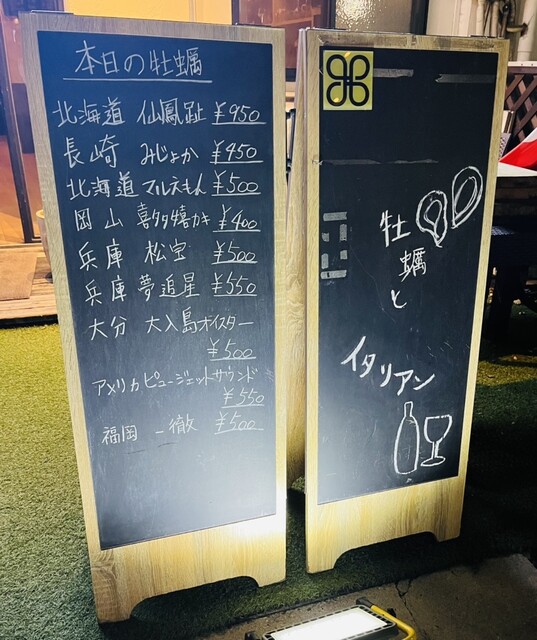 本日の牡蠣
北海道 仙鳳趾 ¥450
長崎 みじょか ¥450
北海道 マルえもん ¥500
岡山 喜多嬉カキ ¥400
兵庫 松宝 ¥500
兵庫 夢追星 ¥550
大分 大入島オイスター
¥500
アメリカ ピュージェットサウンド
¥550
福岡 一徹 ¥500
牡蠣と
イタリアン